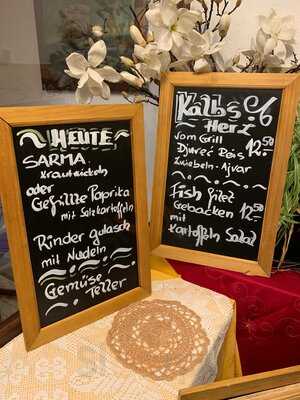 HEUTE
SARMA
Krautwickeln
oder
Gefüllte Paprika
mit Salzkartoffeln
Rinder gulasch
mit Nudeln
Gemüse
Teller
Kalbs
Herz
vom Grill
Djuveč Reis 12,50
Zwiebeln - Ajvar
Fisch filet
Gebacken 12,50
mit
Kartoffeln Salat